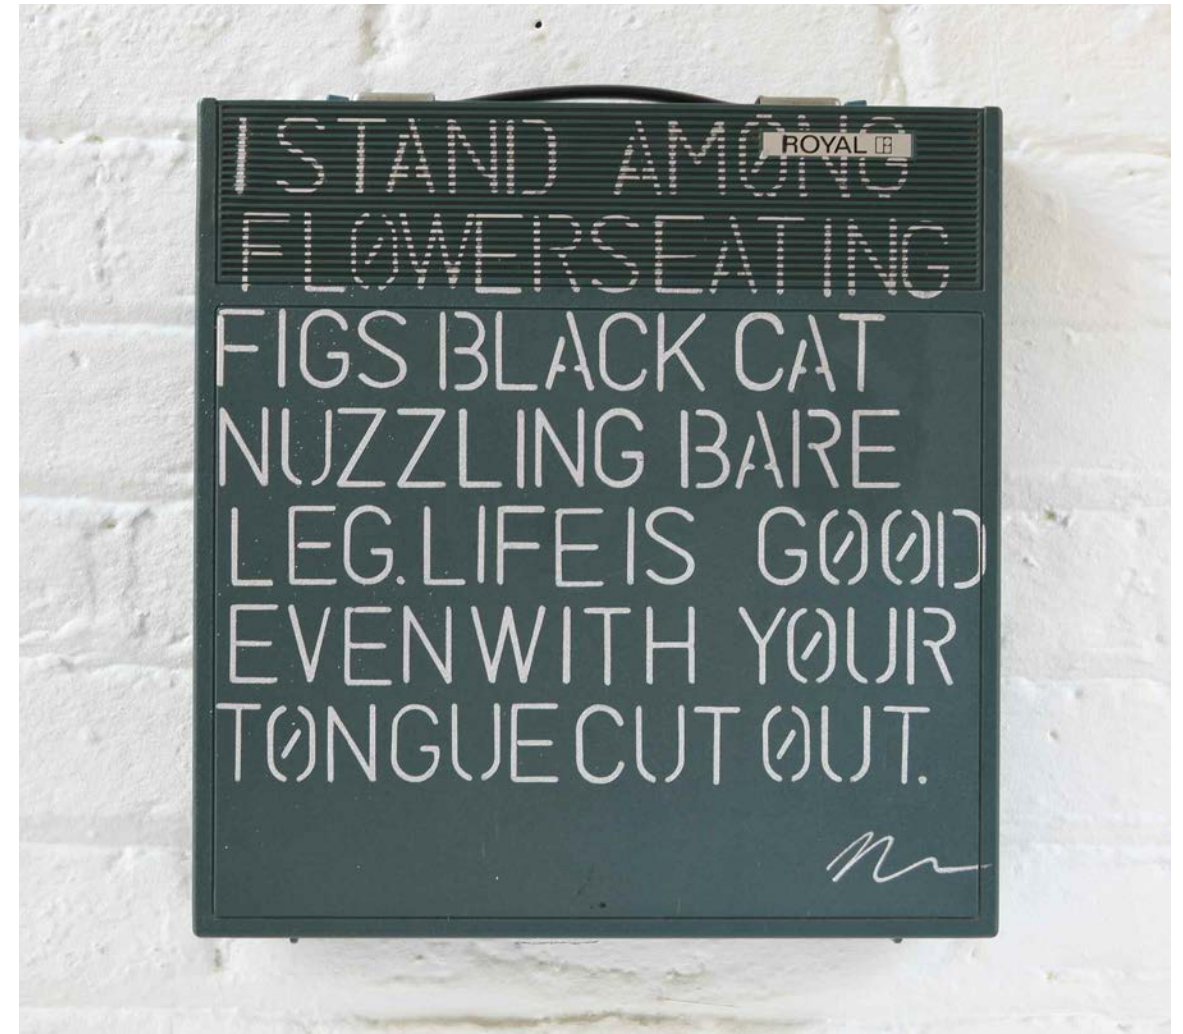 I STAND AMONG
ROYAL
FLOWERSEATING
FIGS BLACK CAT
NUZZLING BARE
LEG.LIFE IS GOOD
EVEN WITH YOUR
TONGUE CUT OUT.